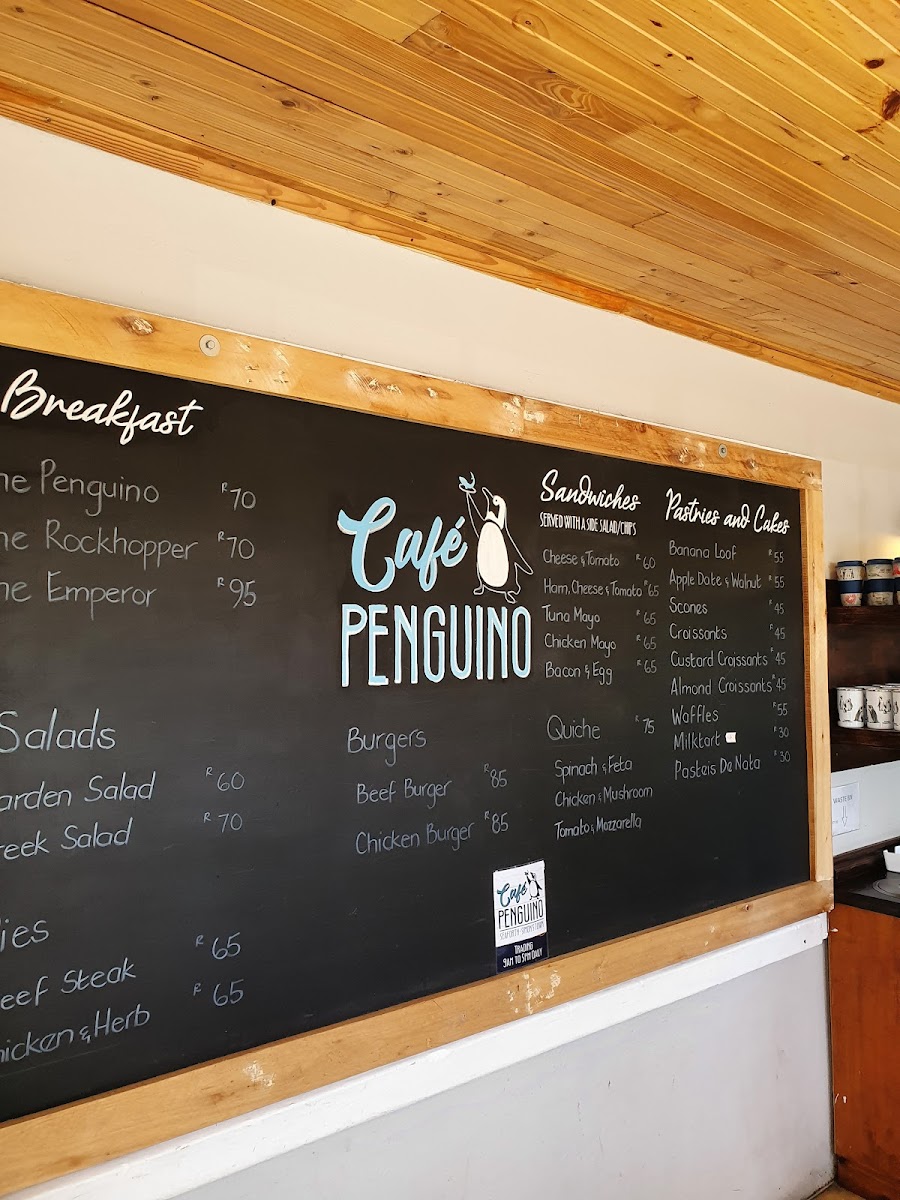 Breakfast
he Penguino R70
he Rockhopper R70
he Emperor R95
Salads
arden Salad R60
reek Salad R70
ies
eef Steak R65
hicken & Herb R65
Café
PENGUINO
Burgers
Beef Burger R85
Chicken Burger R85
Sandwiches
SERVED WITH A SIDE SALAD/CHIPS
Cheese & Tomato R60
Ham, Cheese & Tomato R65
Tuna Mayo R65
Chicken Mayo R65
Bacon & Egg R65
Quiche R75
Spinach & Feta
Chicken & Mushroom
Tomato & Mozzarella
Pastries and Cakes
Banana Loaf R55
Apple Date & Walnut R55
Scones R45
Croissants R45
Custard Croissants R45
Almond Croissants R45
Waffles R55
Milktart R30
Pasteis De Nata R30
Café
PENGUINO
SEAFORTH · SIMONSTOWN
TRADING
9AM TO 5PM DAILY